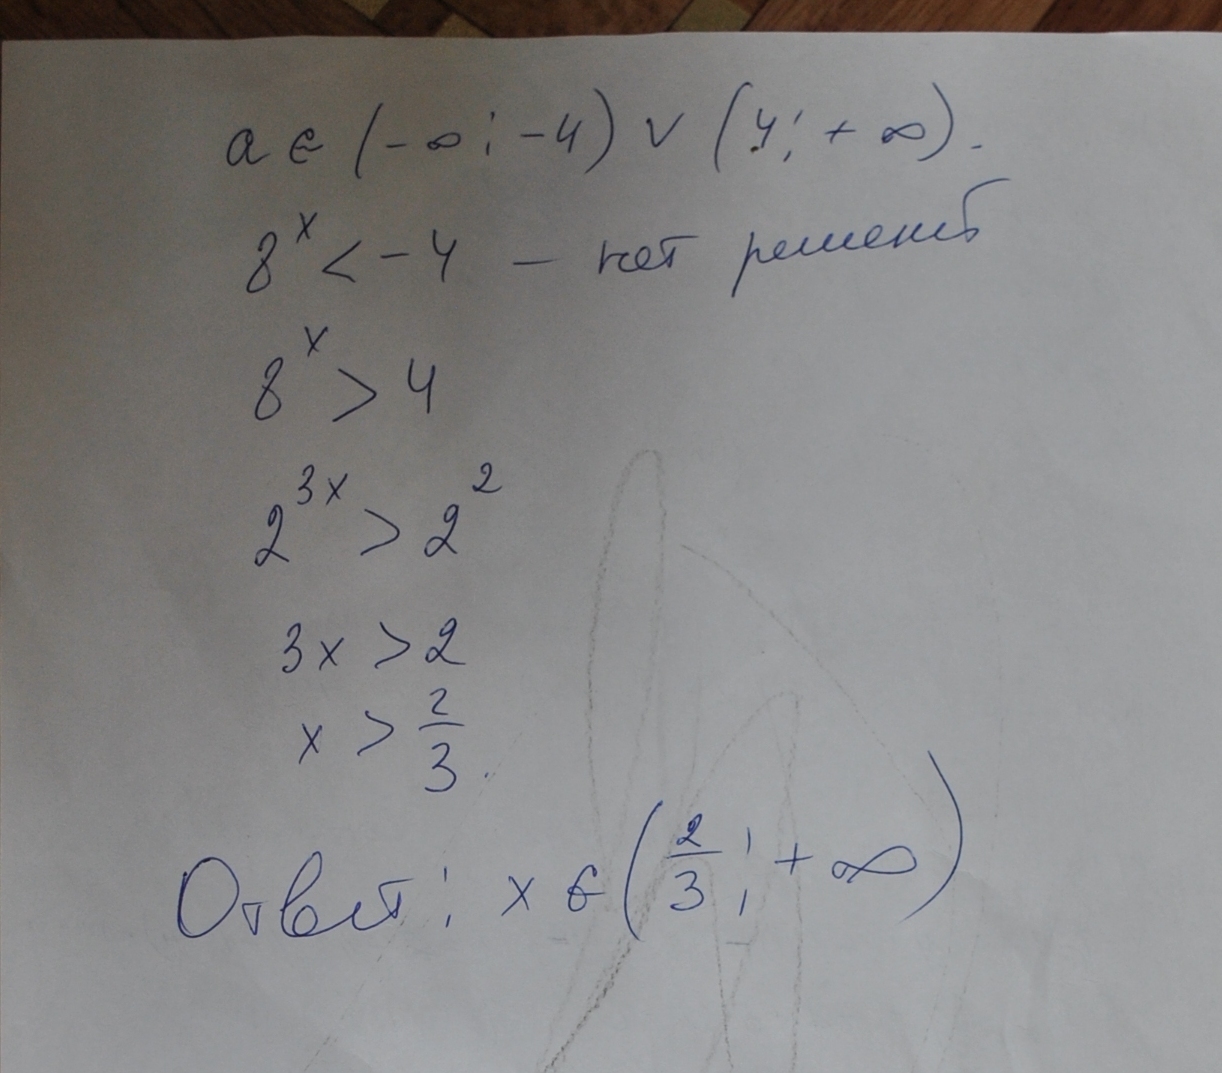 a ∈ (-∞; -4) ∨ (4; +∞).
8^x < -4 — нет решений
8^x > 4
2^{3x} > 2^2
3x > 2
x > 2/3.
Ответ: x ∈ (2/3; +∞)